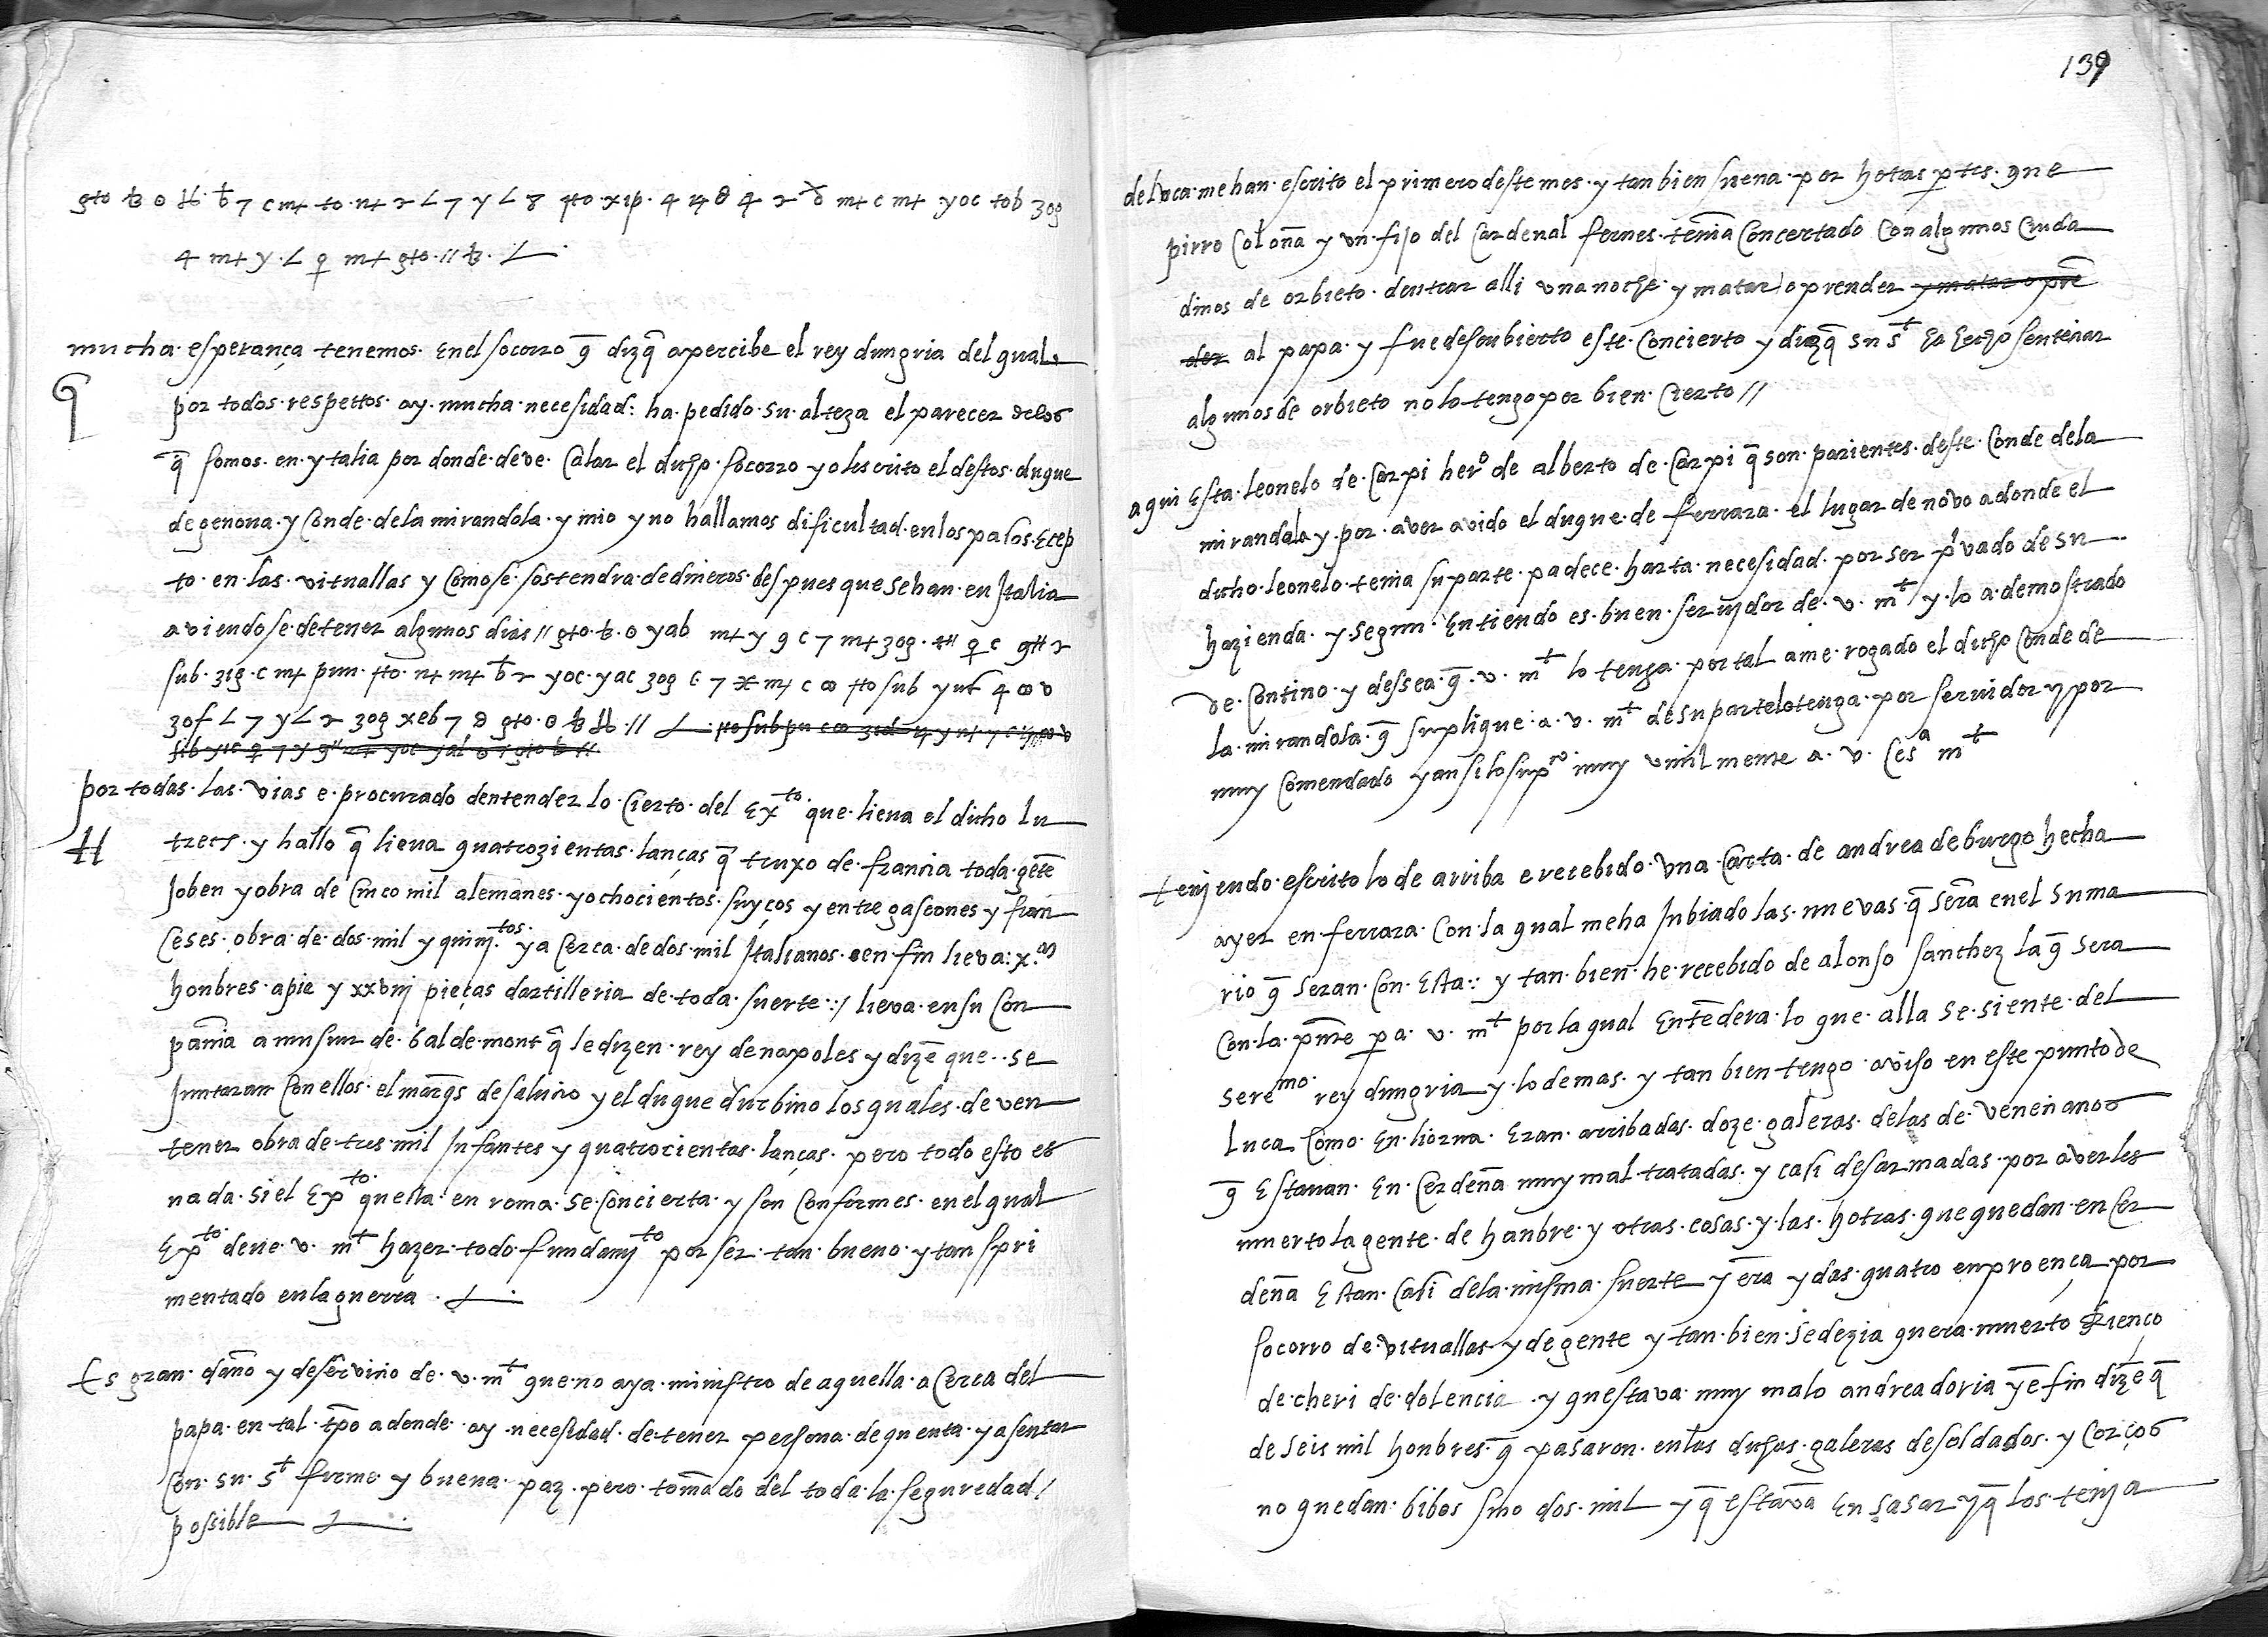 mucha esperança tenemos. Enel socorro q̄ dizq̄ apercibe el rey dungria del qual
por todos respettos ay mucha necesidad: ha pedido su alteza el parecer delos
q̄ somos en ytalia por donde deve Calar el dicho socorro yo lescrito el destos duque
de genova y Conde dela mirandola y mio y no hallamos dificultad en los pasos Ecep
to en las vituallas y Como se sostendra de dineros despues que sehan en Italia
aviendose detener algunos dias //
por todas las vias e procurado dentender lo Cierto del Exto que lieva el dicho lu
trech y hallo q̄ lieva quatrozientas lanças q̄ truxo de francia toda gēte
Joben y obra de Cinco mil alemanes y ochocientos suyços y entre gascones y fran
Ceses obra de dos mil y quinitos y a Cerca de dos mil Italianos en fin lieva: x.m
honbres apie y xxviij pieças dartilleria de toda suerte :/ lieva en su Con
pañia a musiur de baldemont q̄ ledizen rey de napoles y dizē que se
Juntaran Con ellos el marq̄s de saluzo y el duque durbino los quales deven
tener obra de tres mil Infantes y quatrocientas lanças pero todo esto es
nada si el Expto questa en roma se Concierta y son Conformes en el qual
Expto deve v. mt hazer todo fundamjto por ser tan bueno y tan spri
mentado en la guerra
Es gran daño y deservicio de v. mt que no aya ministro de aquella a Cerca del
papa en tal tp̄o adonde ay necesidad de tener persona de quenta y asentar
Con su st firme y buena paz pero tomādo del toda la seguredad /
possible
139
de luca me han escrito el primero deste mes y tan bien suena por hotras ptes que
pirro Coloña y un fijo del Cardenal fernes tenia Concertado Con algunos Ciuda
dinos de orbieto dentrar alli una noche y matar o prender y matar o prē
der al papa y fue descubierto este Concierto y dizq̄ su st ha hecho sentenciar
algunos de orbieto no lo tengo por bien Cierto //
aqui Esta leonelo de Carpi hero de alberto de Carpi q̄ son parientes deste Conde dela
mirandola y por aver avido el duque de ferrara el lugar de novo adonde el
dicho leonelo tenia su parte padece harta necesidad por ser pivado de su
hazienda y segun Entiendo es buen servidor de v. mt y lo a demostrado
de Contino y dessea q̄ v. mt lo tenga por tal ame rogado el dicho Conde de
la mirandola q̄ suplique a v. mt de su parte lo tenga por servidor y por
muy Comendado y ansi lo supco muy umilmente a v. Cesa mt
tenjendo escrito lo de arriba e recebido una Carta de andrea de burgo hecha
ayer en ferrara Con la qual me ha Inbiado las nuevas q̄ serā en el suma
rio q̄ seran Con Esta: y tan bien he recebido de alonso sanchez la q̄ sera
Con la pn̄te pa v. mt por la qual Entēdera lo que alla se siente del
seremo rey dungria y lo demas y tan bien tengo aviso en este punto de
luca Como En liorna Eran arribadas doze galeras delas de venecianos
q̄ Estavan En Cerdeña muy mal tratadas y casi desarmadas por averles
muerto la gente de hanbre y otras cosas y las hotras que quedan en Cer
deña Estan Casi dela misma suerte y era ydas quatro en proença por
socorro de vituallas y de gente y tan bien se dezia quera muerto Rienço
de cheri de dolencia y questava muy malo andrea doria y ē fin dizē q̄
de seis mil honbres q̄ pasaron en las dichas galeras de soldados y Corços
no quedan bibos sino dos mil y q̄ estavā En sasar y q̄ los tenja